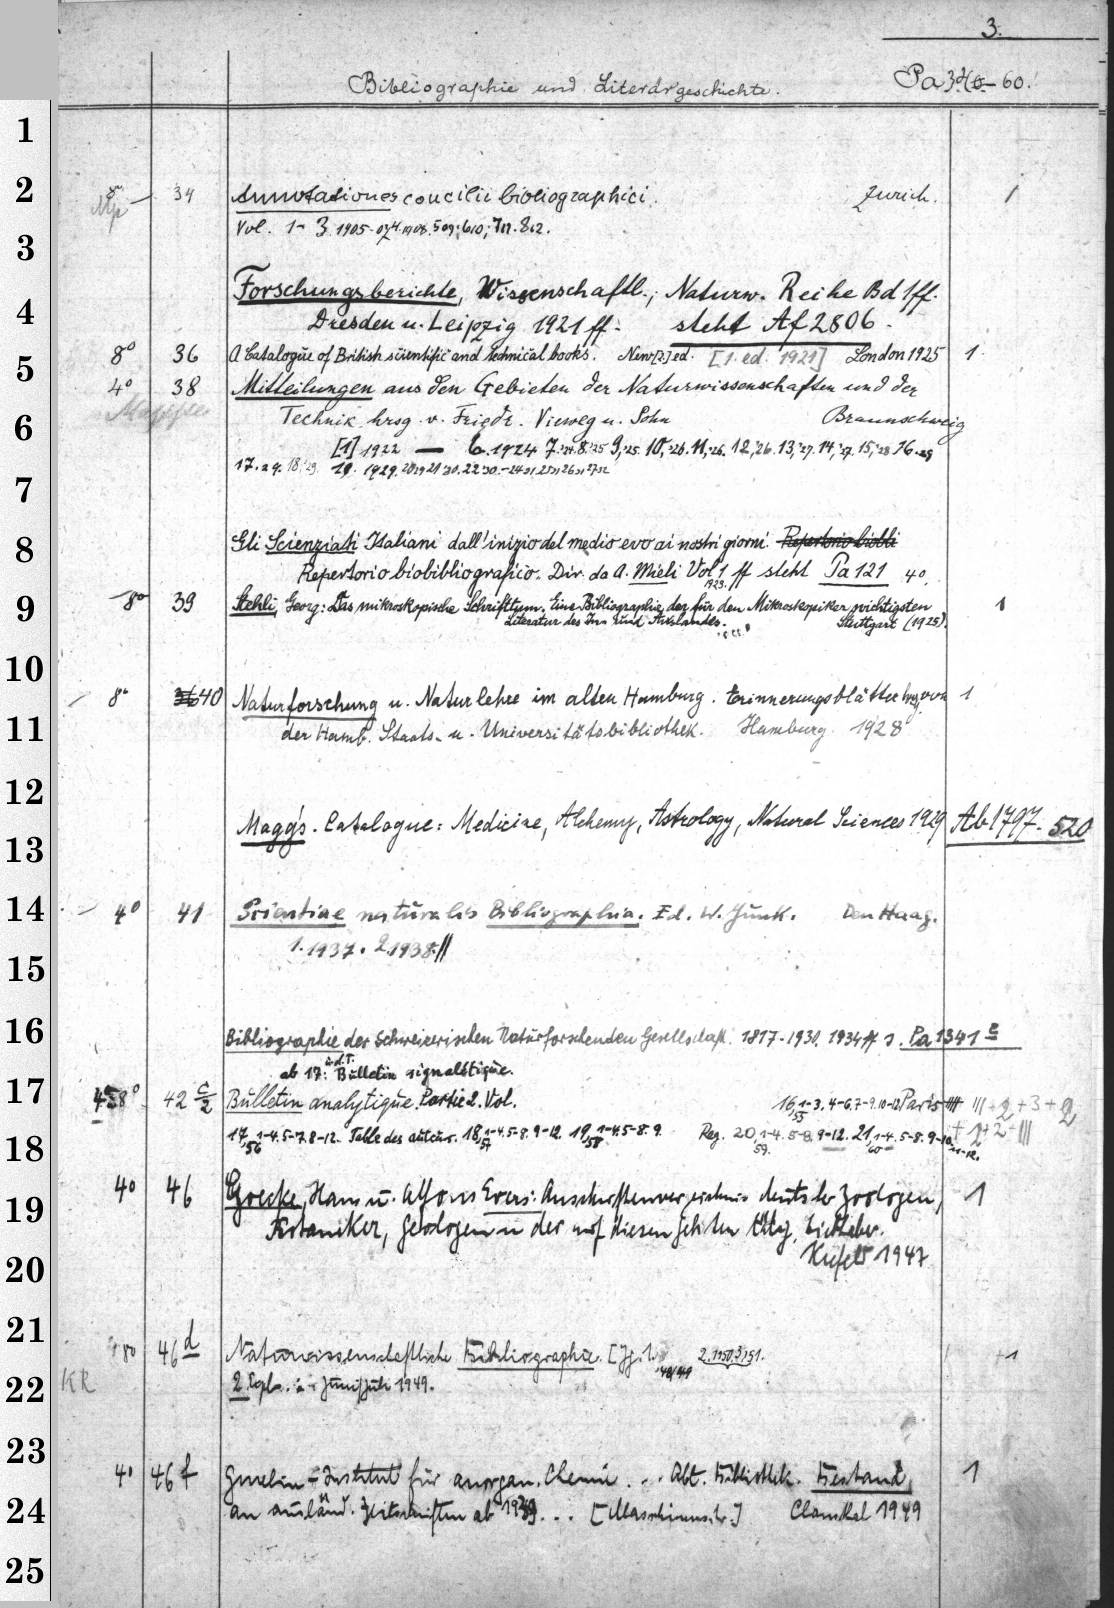 3.
Bibliographie und Literärgeschichte. Pa 34 - 60.
1
2
3
4
5
6
7
8
9
10
11
12
13
14
15
16
17
18
19
20
21
22
23
24
25
8° 34 Annotationes concilii bibliographici. Zürich. 1
Vol. 1-3 1905-07
Forschungsberichte, Wissenschaftl.; Naturw. Reihe Bd 1ff.
Dresden u. Leipzig 1921 ff. steht Af 2806.
8° 36 A Catalogue of British scientific and technical books. New [2.] ed. [1. ed. 1921] London 1925 1
4° 38 Mitteilungen aus den Gebieten der Naturwissenschaften und der
Mappe
Technik hrsg. v. Friedr. Vieweg u. Sohn Braunschweig
[1] 1922 — 6. 1924 7.'24. 8.'25 9,'25. 10,'26. 11,'26. 12,'26. 13,'27. 14,'27. 15,'28 16.
17. 18.'29. 19. 1929.
Gli Scienziati Italiani dall' inizio del medio evo ai nostri giorni. Repertorio biobli
Repertorio biobibliografico. Dir. da A. Mieli Vol 1 ff steht Pa 121 4°.
1923.
8° 39 Stehli, Georg: Das mikroskopische Schrifttum. Eine Bibliographie der für den Mikroskopiker wichtigsten 1
Literatur des In- und Auslandes. Stuttgart (1925).
8° 40 Naturforschung u. Naturlehre im alten Hamburg. Erinnerungsblätter hrsg. von 1
der Hamb. Staats- u. Universitätsbibliothek. Hamburg 1928
Maggs. Catalogue: Medicine, Alchemy, Astrology, Natural Sciences 1929 Ab 1797-520
4° 41 Scientiae naturalis Bibliographia. Ed. W. Junk. Den Haag.
1. 1937. 2. 1938. ||
Bibliographie der Schweizerischen Naturforschenden Gesellschaft. 1817-1930. 1934 ff s. Pa 1341 e
ab 17: u.d.T. Bulletin signalétique.
8° 42 c/2 Bulletin analytique. Partie 2. Vol. 16,1-3. 4-6. 7-9. 10-12 Paris + 2 + 3 + 2
55
17,1-4. 5-7. 8-12. Table des auteurs. 18,1-4. 5-8. 9-12. 19,1-4. 5-8. 9. Reg. 20,1-4. 5-8. 9-12. 21,1-4. 5-8. 9-10. + 2+2+|||
56 57 58 59. 60 11-12.
4° 46 Goecke, Hans u. Alfons Evers: Anschriftenverzeichnis deutscher Zoologen, 1
Botaniker, Geologen u. der auf diesen Gebieten tätig. Liebhaber.
Krefeld 1947
8° 46 d Naturwissenschaftliche Bibliographie. [Jg. 1. 2.1950. 3,'51. 1
'48/'49
KR 2 Expl. Juni/Juli 1949.
4° 46 f Gmelin-Institut für anorgan. Chemie ... Abt. Bibliothek. Bestand 1
an ausländ. Zeitschriften ab 1939 ... [Maschinenschr.] Clausthal 1949